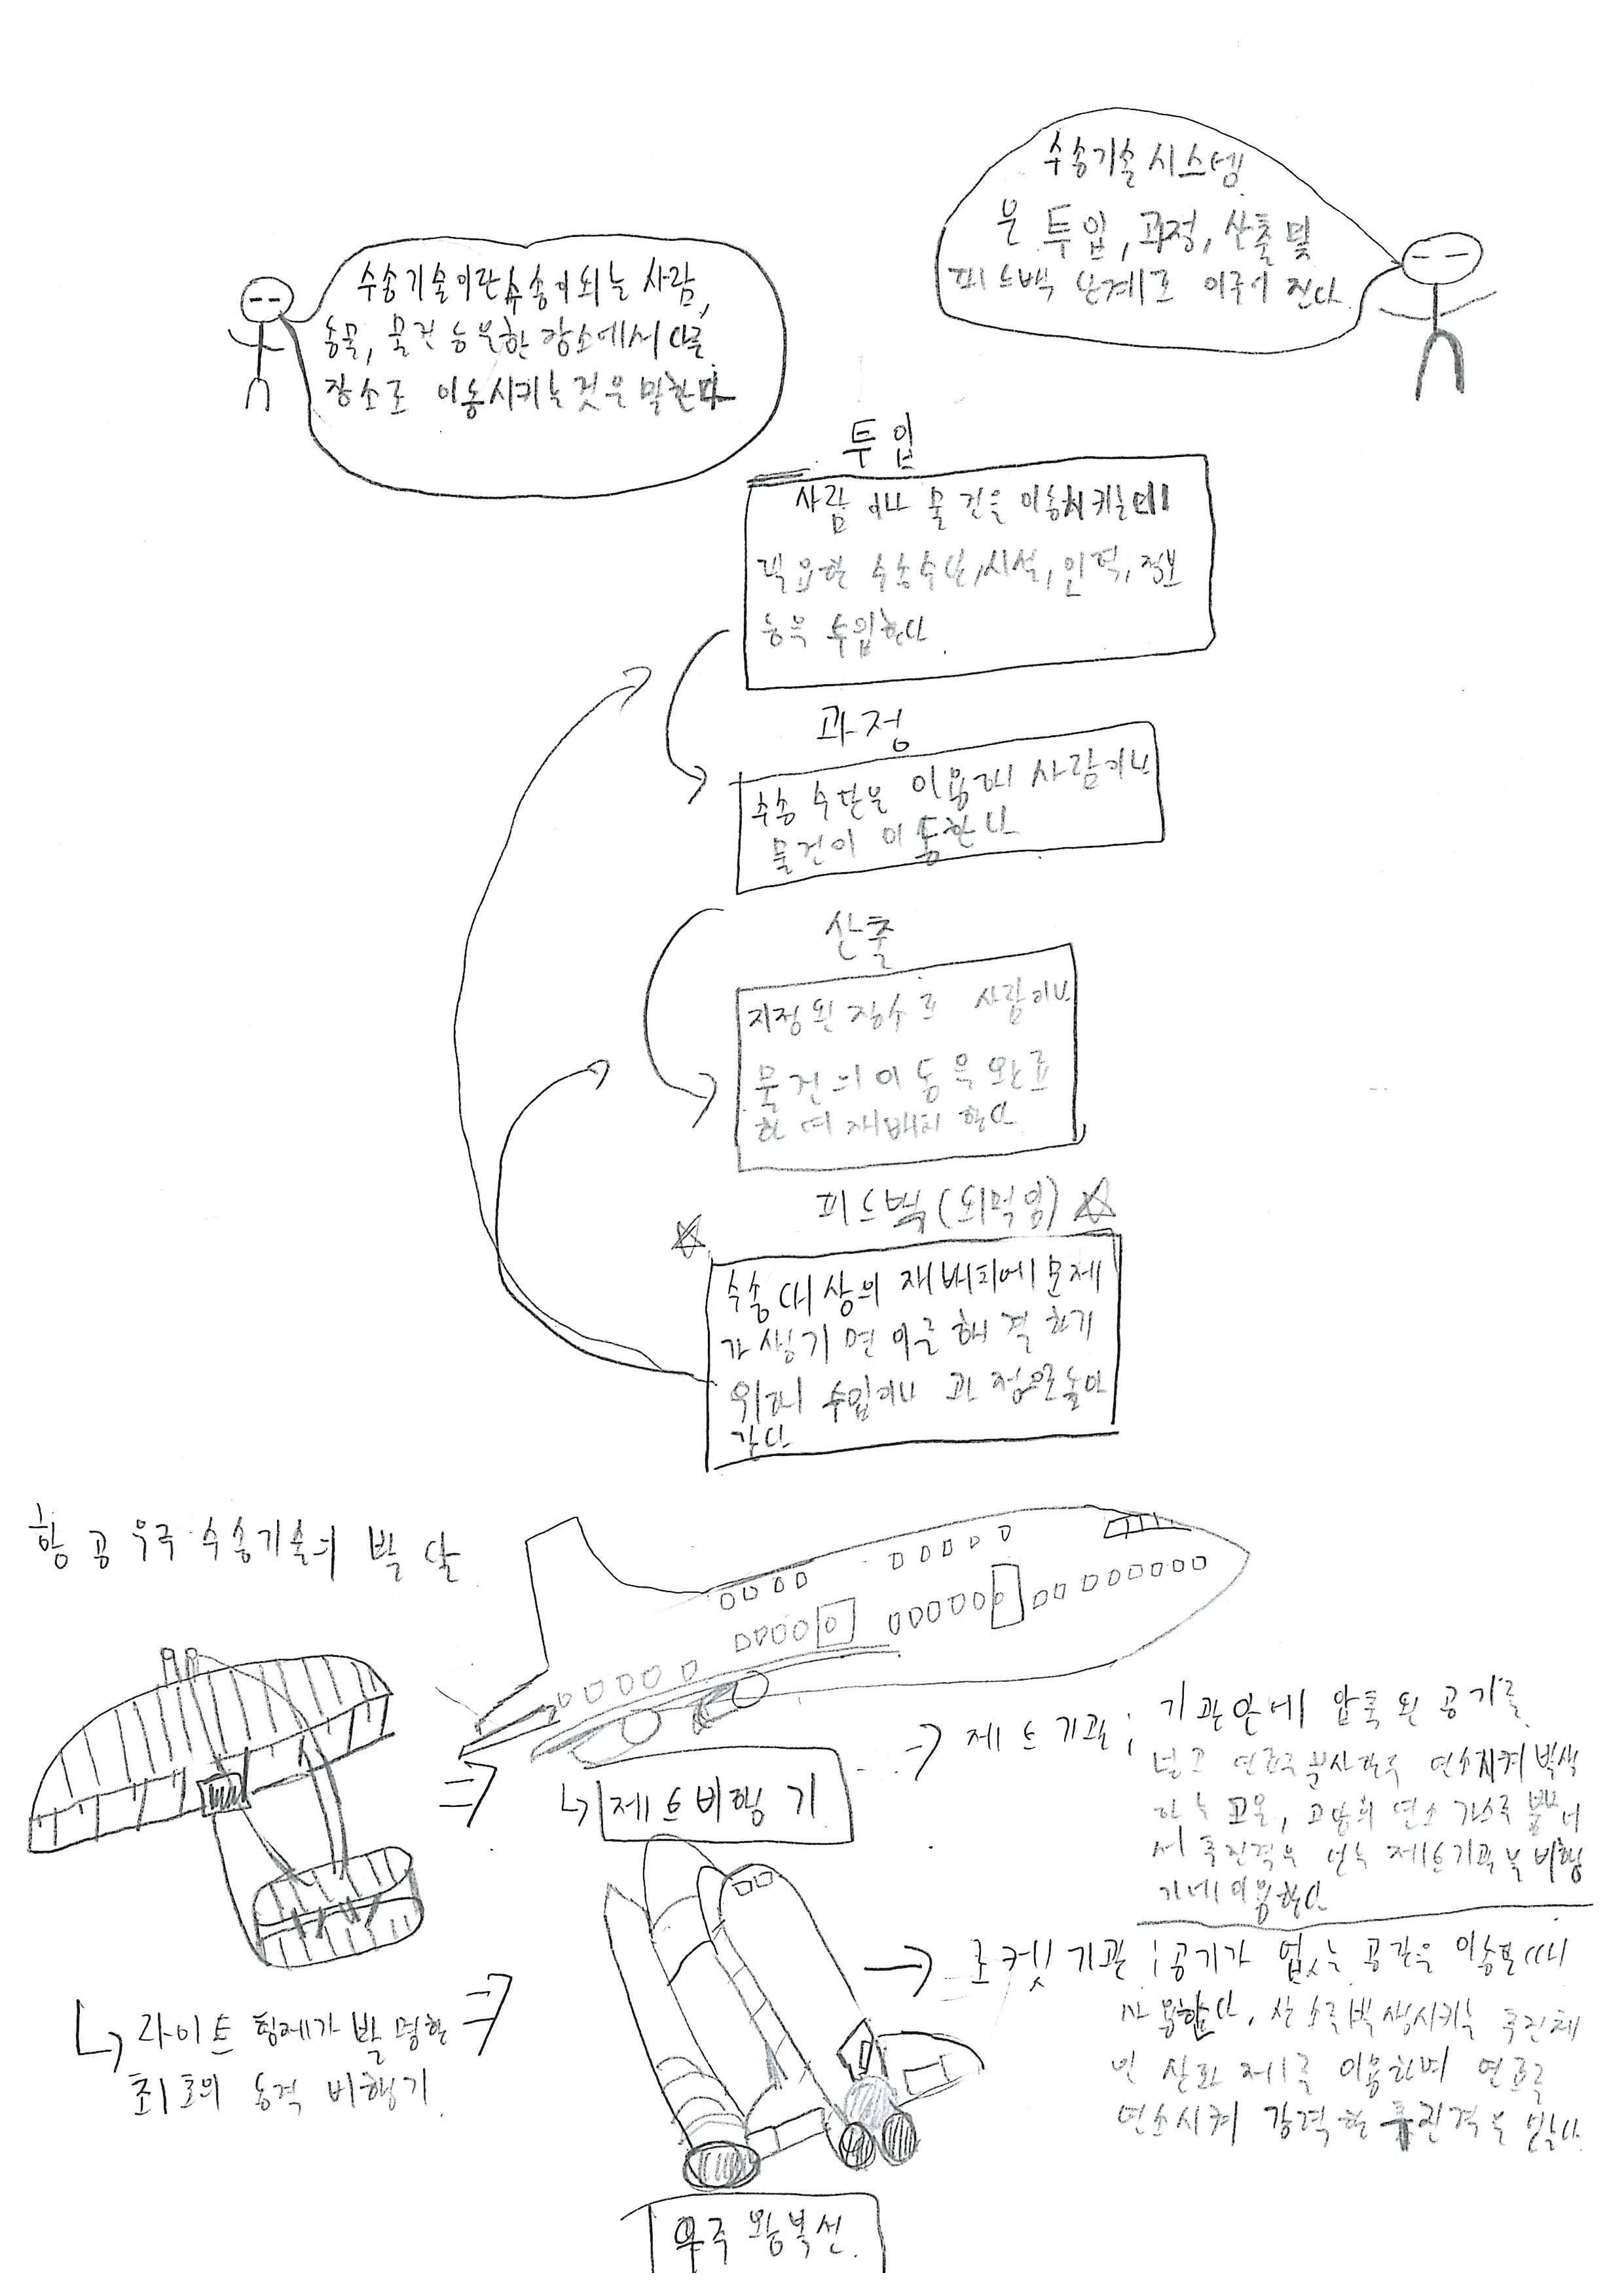 수송기술이란 수송이 되는 사람,
동물, 물건 등을 한 장소에서 다른
장소로 이동시키는 것을 말한다
수송기술 시스템
은 투입, 과정, 산출 및
피드백 단계로 이루어 진다
투입
사람이나 물건을 이동시키는데
필요한 수송수단, 시설, 인력, 정보
등을 수입한다
과정
수송 수단을 이용해 사람이나
물건이 이동한다
산출
지정된 장소로 사람이나
물건의 이동을 완료
하며 재배치 한다
피드백 (되먹임)
수송 대상의 재배치에 문제
가 생기면 이를 해결하기
위해 수입이나 과정으로 돌아
간다
항공 우주 수송기술의 발달
제트비행기
제트기관; 기관안에 압축된 공기를
넣고 연료를 분사한후 연소시켜 발생
하는 고온, 고압의 연소 가스를 뿜어내
서 추진력을 얻는 제트기관을 비행
기에 이용한다
라이트 형제가 발명한
최초의 동력 비행기
로켓 기관; 공기가 없는 공간을 이동할때
사용한다. 산소를 발생시키는 추진체
인 산화제를 이용하며 연료를
연소시켜 강력한 추진력을 얻는다
우주 왕복선